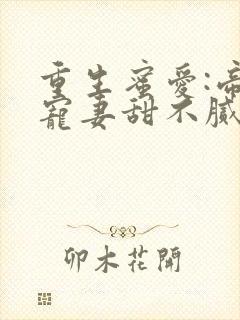 重生蜜愛:帝
寵妻甜不膩
卯木花開